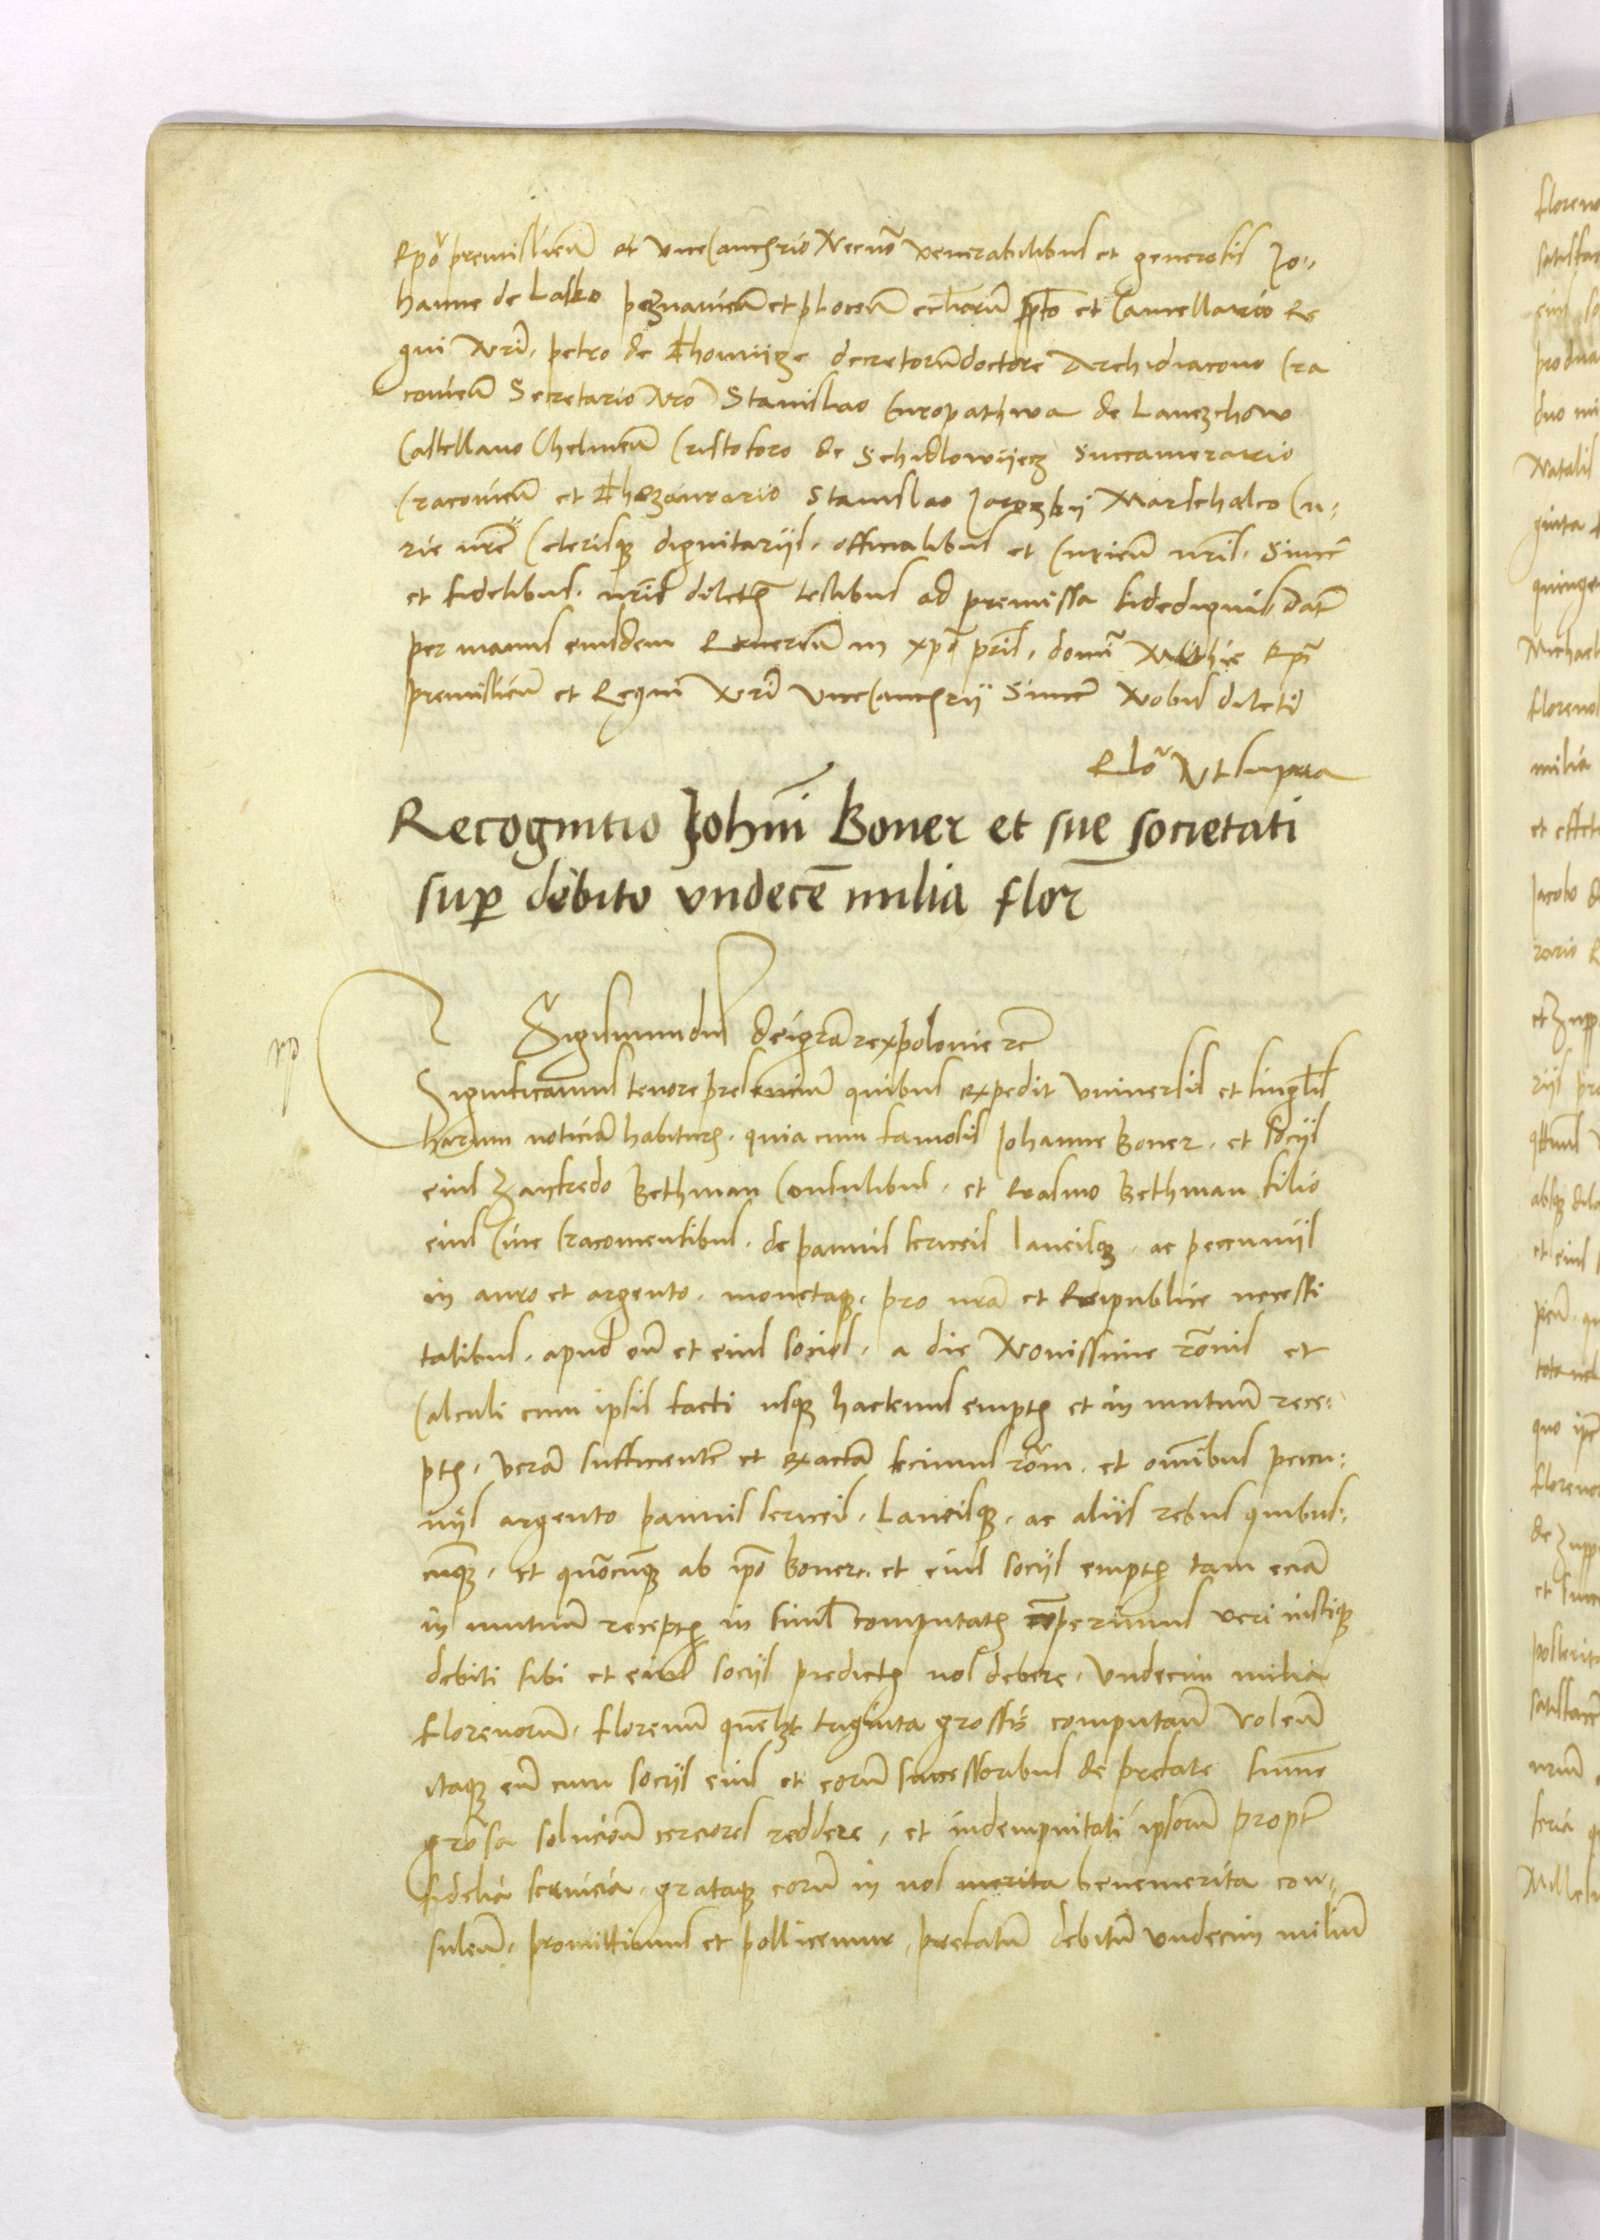 Epō premislień et vicecancʒrio Necnō venerabilibus et generosis Jo-
hanne de Lasko poznanień et plocēn eccliarū ppto et Cancellario Re
gni Nri. petro de Thomijze decretorūdoctore Archidiacono Cra
couień Secretario Nro Stanislao Curopathwa de Lanczchow
Castellano Chelmēn Cristoforo de Schidlowijecz Succamerario
Cracouień et Thezaurario Stanislao Jaroszkij Marschalco Cu-
rie nre Ceterisqʒ dignitarijs. officialibus et Curień nris. Sincē
et fidelibus. nris dilctʒ testibus ad premissa fidedignis Datū
per manus eiusdem Reuerēn in xpō pris. domī Mathie Epi
premislień et Regni Nri vicecancʒrij Sincē Nobis dilcti
Rlo Vt supra
Recognitio Johnī Boner et sue societati
sup debito vndecē milia flor
Sigismundus deigrā rexpolonie rc
Significamus tenore presenciū quibus expedit vniuersis et singlis
harum noticiā habiturʒ. quia cum famosis Johanne Boner. et socijs
eius Zanfredo Bethman Consulibus. et Erasmo Bethman filio
eius Ciue Cracouiensibus. de pannis sericeis laneisqʒ. ac peccunijs
in auro et argento. monetaqʒ. pro nrā et Reipublice necessi
tatibus. apud eū et eius socios. a die Nouissime rōnis et
Calculi cum ipsis facti usqʒ hactenus emptʒ et in mutuū rece-
ptʒ. verā sufficientē et exactā fecimus rōm. et omībus pecu-
nijs argento pannis sericeis. Laneisqʒ. ac alijs rebus quibus-
cūqʒ. et quōcūqʒ ab ipō Boner. et eius socijs emptʒ tam eciā
in mutuū receptʒ in simul computatʒ comperimus veri iustiqʒ
debiti sibi et eius socijs predictʒ nos debere. Vndecim milia
florenorū. florenū quēlʒt triginta grossis computań Voleń
itaqʒ eū cum socijs eius et eorū successoribus de prefate summe
grosa solucioń cerciores reddere. et indempnitati ipsorū proptʳ
fidelia seruicia. grataqʒ eorū in nos merita benemerita con-
suleń. promittimus et pollicemur. prefatū debitū vndecim miliū